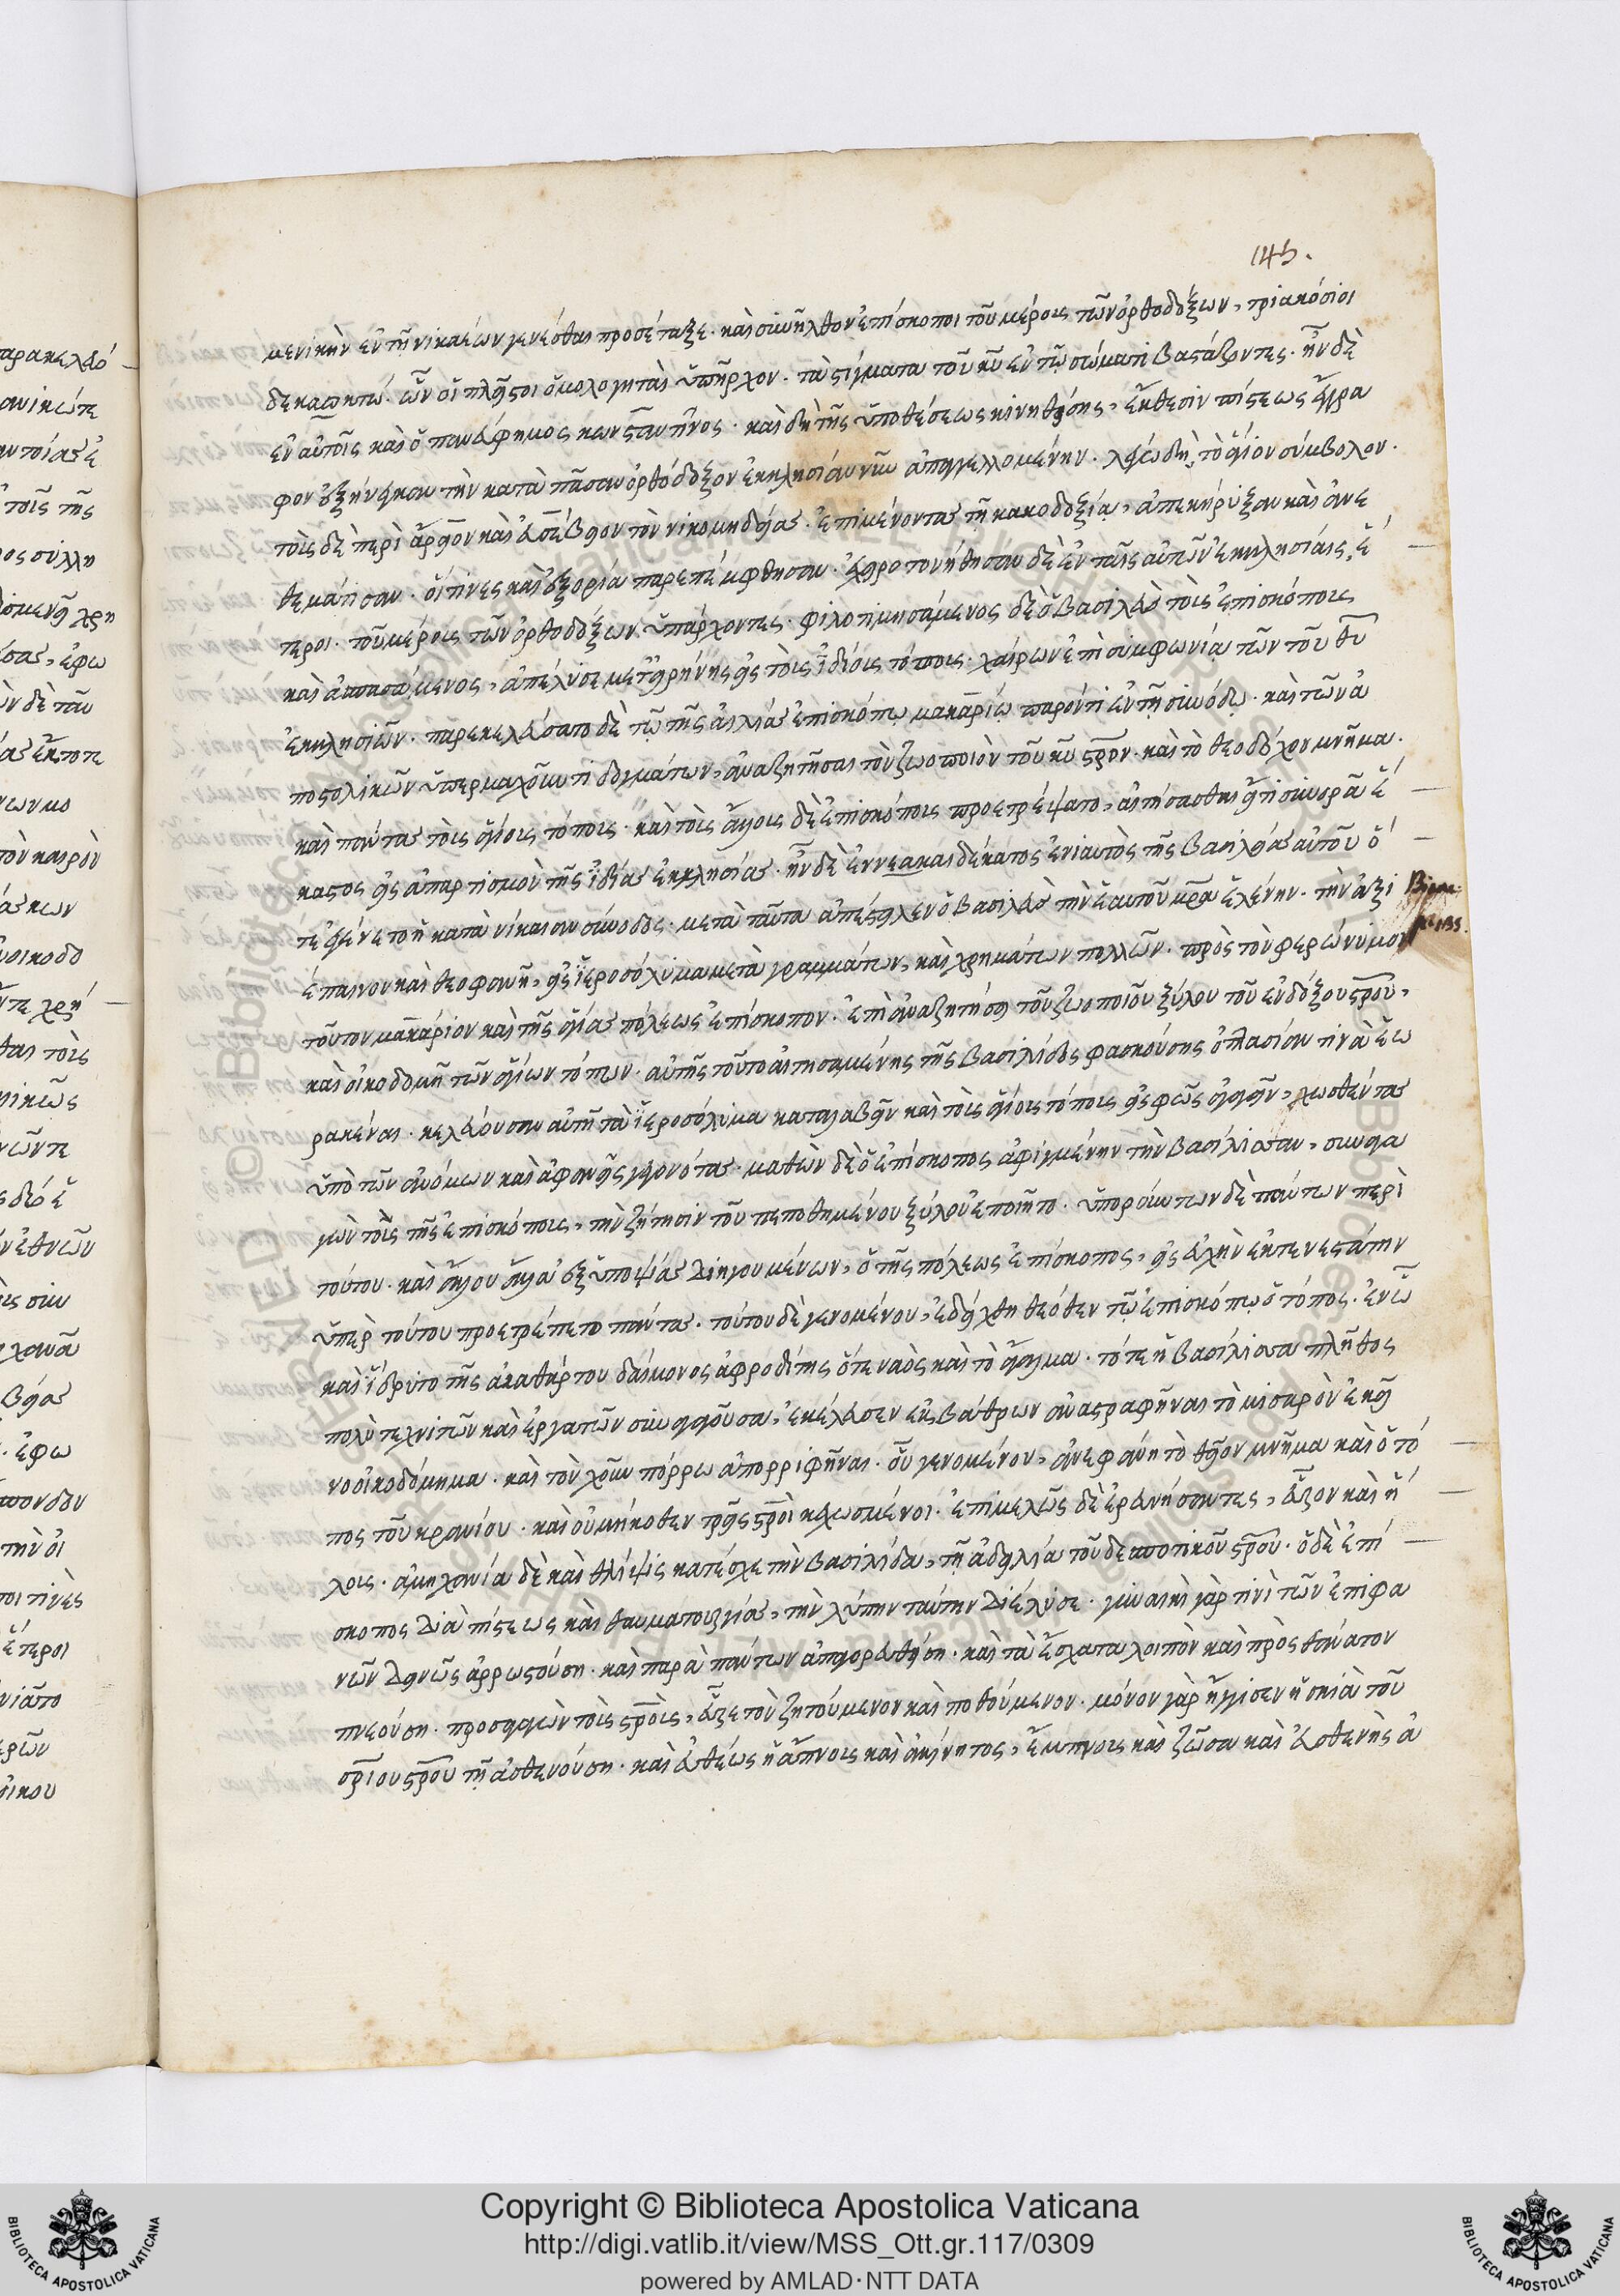 145.
μενικὴν ἐν τῇ νικαέων γενέσθαι προσέταξε· καὶ συνῆλθον ἐπίσκοποι τοῦ μέρους τῶν ὀρθοδόξων, τριακόσιοι
δεκαοκτώ· ὧν οἱ πλεῖστοι ὁμολογηταὶ ὑπῆρχον· τὰ στίγματα τοῦ κυ ἐν τῷ σώματι βαστάζοντες· ἦν δὲ
ἐν αὐτοῖς καὶ ὁ πανεύφημος κωνσταντῖνος· καὶ δὴ τῆς ὑποθέσεως κινηθείσης, ἔκθεσιν πίστεως ἔγγρα
φον ἐξήνεγκαν τὴν κατὰ πᾶσαν ὀρθόδοξον ἐκκλησίαν νῦν ἀπαγγελλομένην· λέγω δὴ, τὸ ἅγιον σύμβολον·
τοὺς δὲ περὶ ἄρειον καὶ εὐσέβειον τὸν νικομηδείας· ἐπιμένοντας τῇ κακοδοξίᾳ, ἀπεκήρυξαν καὶ ἀνε
θεμάτισαν· οἵτινες καὶ ἐξορία παρεπέμφθησαν· ἐχειροτονήθησαν δὲ ἐν ταῖς αὐτῶν ἐκκλησίαις, ἕ
τεροι· τοῦ μέρους τῶν ὀρθοδόξων ὑπάρχοντες· φιλοτιμησάμενος δὲ ὁ βασιλεὺς τοὺς ἐπισκόπους
καὶ ἀσπασάμενος, ἀπέλυσε μετ' εἰρήνης εἰς τοὺς ἰδίους τόπους· χαίρων ἐπὶ συμφωνίᾳ τῶν τοῦ θυ
ἐκκλησιῶν· παρεκελεύσατο δὲ τῷ τῆς αἰλίας ἐπισκόπῳ μακαρίῳ παρόντι ἐν τῇ συνόδῳ· καὶ τῶν ἀ
ποστολικῶν ὑπερμαχοῦντι δογμάτων, ἀναζητῆσαι τὸν ζωοποιὸν τοῦ κυ στρον· καὶ τὸ θεοδόχον μνῆμα·
καὶ πάντας τοὺς ἁγίους τόπους· καὶ τοὺς ἄλλους δὲ ἐπισκόπους προετρέψατο, αἰτήσασθαι εἴ τι συνορᾶ ἕ
καστος εἰς ἀπαρτισμὸν τῆς ἰδίας ἐκκλησίας· ἦν δὲ ἐννεακαιδέκατος ἐνιαυτὸς τῆς βασιλείας αὐτοῦ ὅ
τε ἐγένετο ἡ κατὰ νίκαιαν σύνοδος· μετὰ ταῦτα ἀπέστειλεν ὁ βασιλεὺς τὴν ἑαυτοῦ μρα ἑλένην· τὴν ἀξι
έπαινον καὶ θεοφανῆ, εἰς ἱεροσόλυμα μετὰ γραμμάτων, καὶ χρημάτων πολλῶν· πρὸς τὸν φερώνυμον
τοῦτον μακάριον καὶ τῆς ἁγίας πόλεως ἐπίσκοπον· ἐπὶ ἀναζητήσει τοῦ ζωοποιοῦ ξύλου τοῦ ἐνδόξου στρου,
καὶ οἰκοδομῇ τῶν ἁγίων τόπων· αὐτῆς τοῦτο αἰτησαμένης τῆς βασιλίδος φασκούσης ὀπτασίαν τινὰ ἑω
ρακέναι· κελεύουσαν αὐτῇ τὰ ἱεροσόλυμα καταλαβεῖν καὶ τοὺς ἁγίους τόπους εἰς φῶς ἀγαγεῖν, χωσθέντας
ὑπὸ τῶν ἀνόμων καὶ ἀφανεῖς γεγονότας· μαθὼν δὲ ὁ ἐπίσκοπος ἀφιγμένην τὴν βασίλισσαν, συναγα
γὼν τοὺς τῆς ἐπισκόπους, τὴν ζήτησιν τοῦ πεποθημένου ξύλου ἐποιεῖτο· ὑπορούντων δὲ πάντων περὶ
τούτου· καὶ ἄλλου ἄλλα ἐξ ὑποψίας διηγουμένων, ὁ τῆς πόλεως ἐπίσκοπος, εἰς εὐχὴν ἐκτενεστάτην
ὑπὲρ τούτου προετρέπετο πάντας· τούτου δὲ γενομένου, ἐδείχθη θεόθεν τῷ ἐπισκόπῳ ὁ τόπος· ἐν ᾧ
καὶ ἵδρυτο τῆς ἀκαθάρτου δαίμονος ἀφροδίτης ὅ τε ναὸς καὶ τὸ ἄγαλμα· τότε ἡ βασίλισσα πλῆθος
πολὺ τεχνιτῶν καὶ ἐργατῶν συναγαγοῦσα, ἐκέλευσεν ἐκ βάθρων ἀναστραφῆναι τὸ μιαρὸν ἐκεῖ
νο οἰκοδόμημα· καὶ τὸν χοῦν πόρρω ἀπορριφῆναι· οὗ γενομένου, ἀνεφάνη τὸ θεῖον μνῆμα καὶ ὁ τό
πος τοῦ κρανίου· καὶ οὐ μήκοθεν τρεῖς στροὶ κεχωσμένοι· ἐπιμελῶς δὲ ἐρευνήσαντες, εὗρον καὶ ἥ
λους· ἀμηχανία δὲ καὶ θλίψις κατέσχε τὴν βασιλίδα, τῇ ἀδηλία τοῦ δεσποτικοῦ στρου· ὁ δὲ ἐπί
σκοπος διὰ πίστεως καὶ θαυματουργίας, τὴν λύπην ταύτην διέλυσε· γυναικὶ γάρ τινι τῶν ἐπιφα
νῶν δεινῶς ἀρρωστούσῃ· καὶ παρὰ πάντων ἀπαγορευθείσῃ· καὶ τὰ ἔσχατα λοιπὸν καὶ πρὸς θάνατον
πνεούσῃ· προσαγαγὼν τοὺς στροὺς, εὗρε τὸν ζητούμενον καὶ ποθούμενον· μόνον γὰρ ἤγγισεν ἡ σκιὰ τοῦ
σριου στρου τῇ ἀσθενούσῃ· καὶ εὐθέως ἡ ἄπνους καὶ ἀκίνητος, ἔμπνους καὶ ζῶσα καὶ εὐσθενὴς ἀ
Copyright © Biblioteca Apostolica Vaticana
http://digi.vatlib.it/view/MSS_Ott.gr.117/0309
powered by AMLAD·NTT DATA
BIBLIOTECA APOSTOLICA VATICANA
BIBLIOTECA APOSTOLICA VATICANA